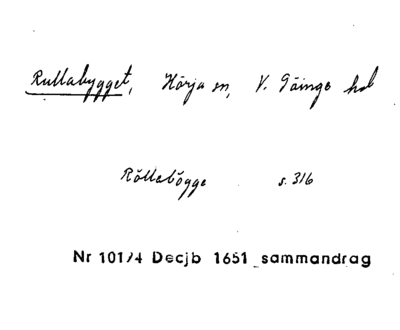 Rullabygget, Hörja sn, V. Göinge hd
Röllebögge s. 316
Nr 101/4 Decjb 1651 sammandrag